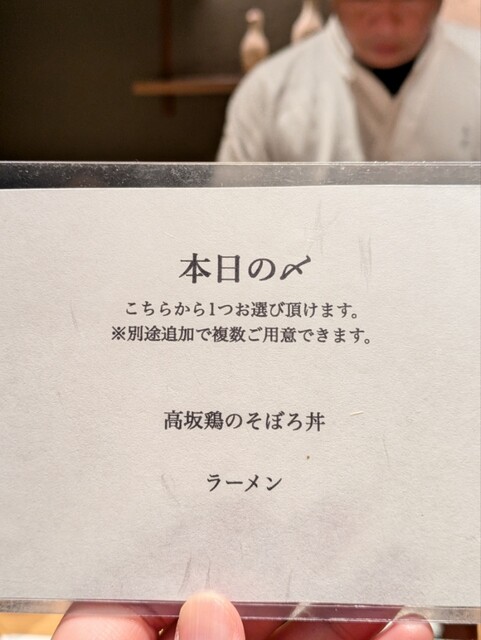 本日の〆
こちらから1つお選び頂けます。
※別途追加で複数ご用意できます。
高坂鶏のそぼろ丼
ラーメン